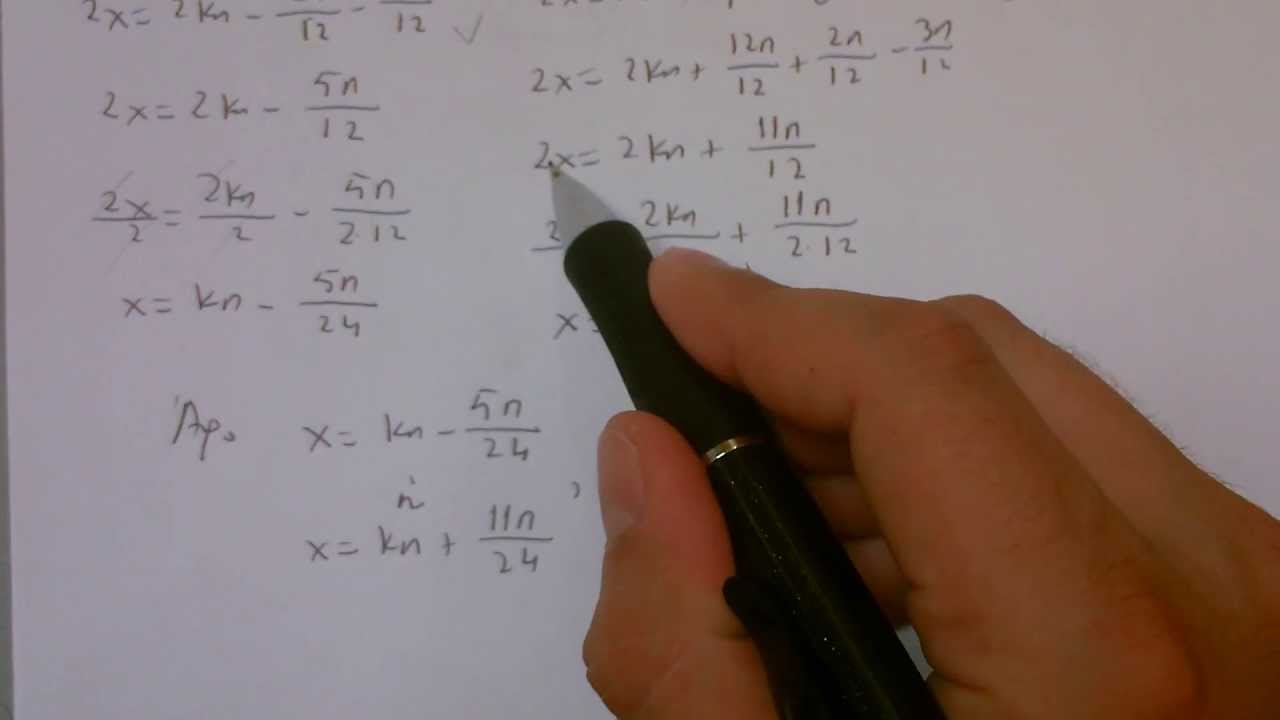 2x = 2kπ -
2x = 2kπ - 5π/12
2x/2 = 2kπ/2 - 5π/2·12
x = kπ - 5π/24
2x = 2kπ + 12π/12 + 2π/12 - 3π/12
2x = 2kπ + 11π/12
2kπ + 11π/2·12
x =
Άρα x = kπ - 5π/24
ή ,
x = kπ + 11π/24